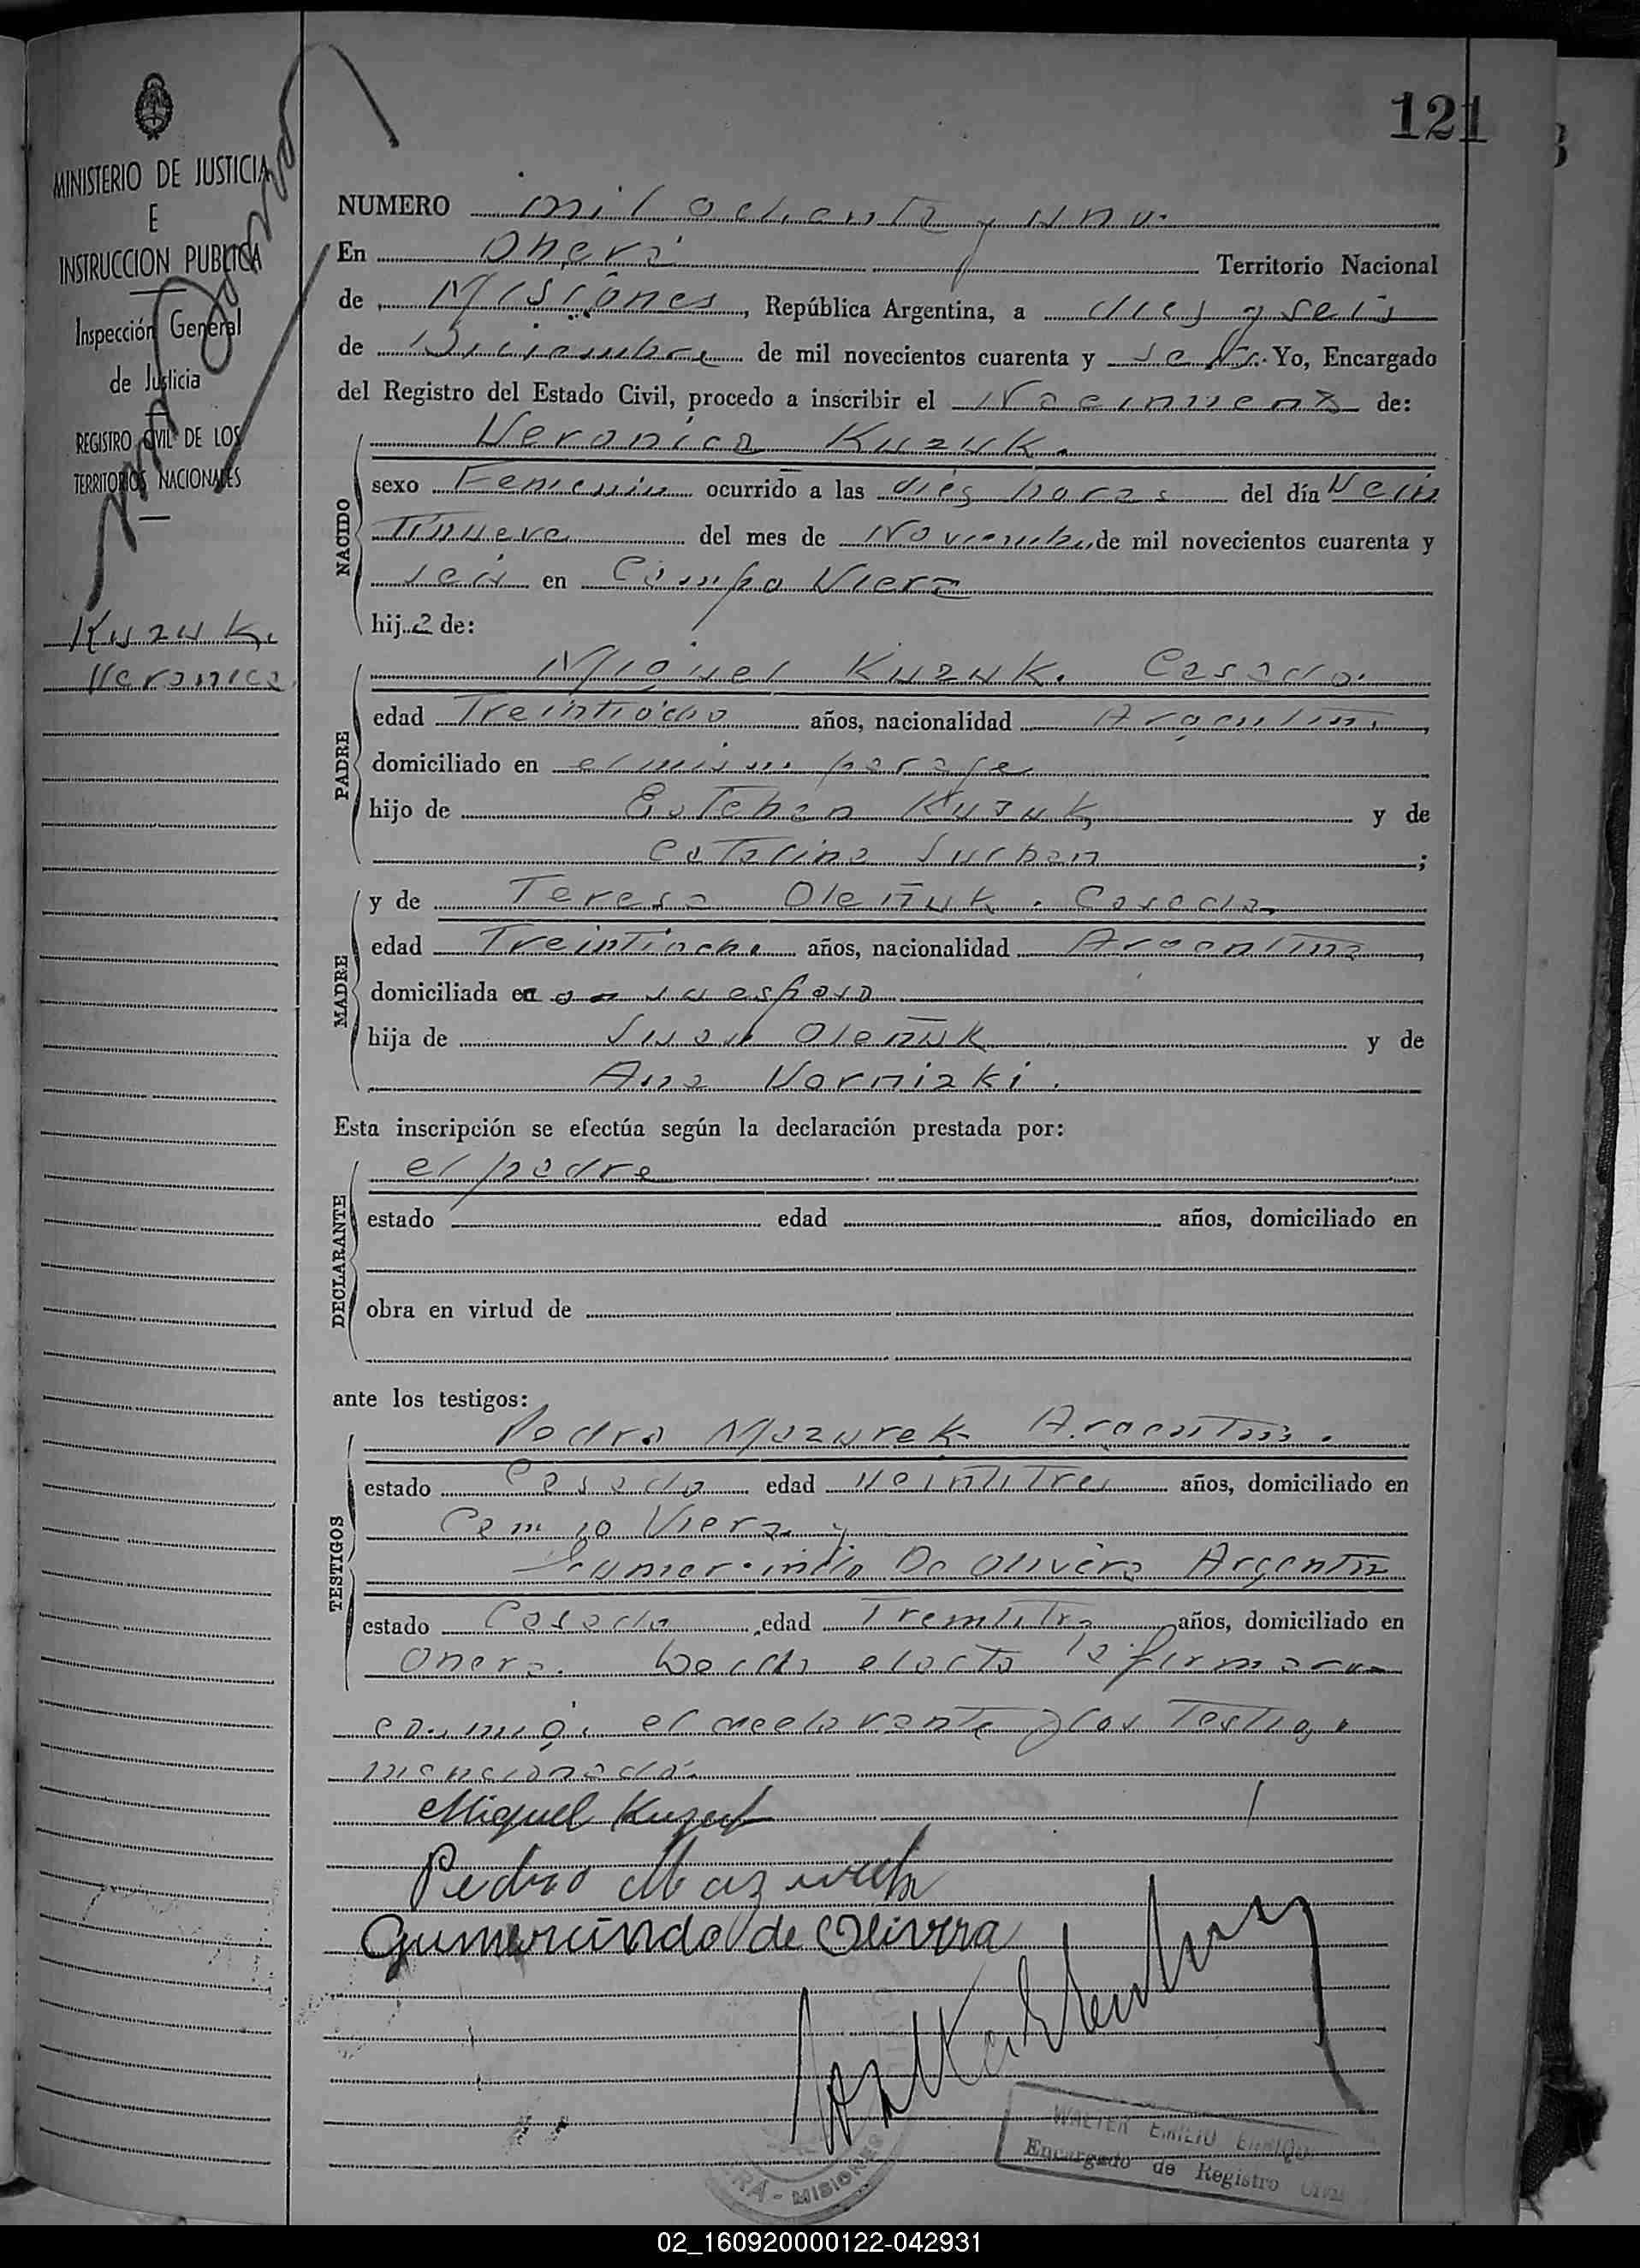 121
MINISTERIO DE JUSTICIA
E
INSTRUCCION PUBLICA
Inspección General
de Justicia
REGISTRO CIVIL DE LOS
TERRITORIOS NACIONALES
Kuzuk.
Veronica
NUMERO mil ochenta y uno.
En Oberá Territorio Nacional
de Misiones, República Argentina, a diez y seis
de Diciembre de mil novecientos cuarenta y seis. Yo, Encargado
del Registro del Estado Civil, procedo a inscribir el Nacimiento de:
NACIDO
Veronica Kuzuk.
sexo Femenino ocurrido a las diez horas del día Vein
tinueve del mes de Noviembre de mil novecientos cuarenta y
seis en Campo Viera
hija de:
PADRE
Miguel Kuzuk. Casado.
edad Treintiocho años, nacionalidad Argentino,
domiciliado en el mismo paraje
hijo de Esteban Kuzuk y de
Catalina Surban;
MADRE
y de Teresa Oleñuk. Casada
edad Treintiocho años, nacionalidad Argentina,
domiciliada en su esposo
hija de Juan Oleñuk y de
Ana Vorniski.
Esta inscripción se efectúa según la declaración prestada por:
DECLARANTE
el padre
estado edad años, domiciliado en
obra en virtud de
ante los testigos:
TESTIGOS
Pedro Mazurek Argentino.
estado Casado edad Veintitres años, domiciliado en
Campo Viera y
Gumercindo De Olivera Argentino
estado Casado edad Treintitres años, domiciliado en
Oberá. Leida el acta la firmaron
conmigo el declarante y los Testigos
mencionados.
Miguel Kuzuk
Pedro Mazurek
Gumercindo de Olivera
WALTER EMILIO
Encargado de Registro Civil
RÁ - MISIONES
02_160920000122-042931